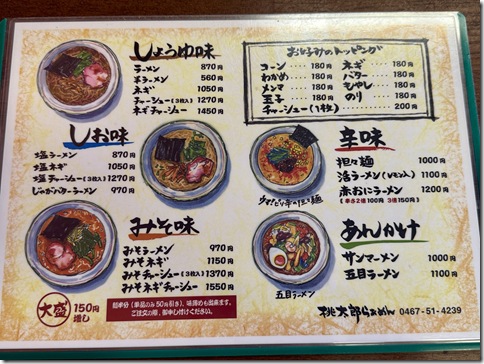 しょうゆ味
ラーメン 870円
半ラーメン 560円
ネギ 1050円
チャーシュー(3枚入) 1270円
ネギチャーシュー 1450円
お好みのトッピング
コーン… 180円
わかめ… 180円
メンマ… 180円
玉子… 180円
チャーシュー(1枚)
ネギ… 180円
バター… 180円
もやし… 180円
のり… 180円
… 200円
しお味
塩ラーメン 870円
塩ネギ 1050円
塩チャーシュー(3枚入) 1270円
じゃがバターラーメン 970円
辛味
担々麺 1000円
活ラーメン 1100円
赤おにラーメン 1200円
【辛さ2倍100円 3倍150円】
みそ味
みそラーメン 970円
みそネギ 1150円
みそチャーシュー(3枚入) 1370円
みそネギチャーシュー 1550円
あんかけ
サンマーメン 1000円
五目ラーメン 1100円
五目ラーメン
大盛 150円増し
麺半分(単品のみ50円引き)、味薄めも出来ます。
ご注文の際、御申し付けください。
桃太郎らぁめん 0467-51-4239